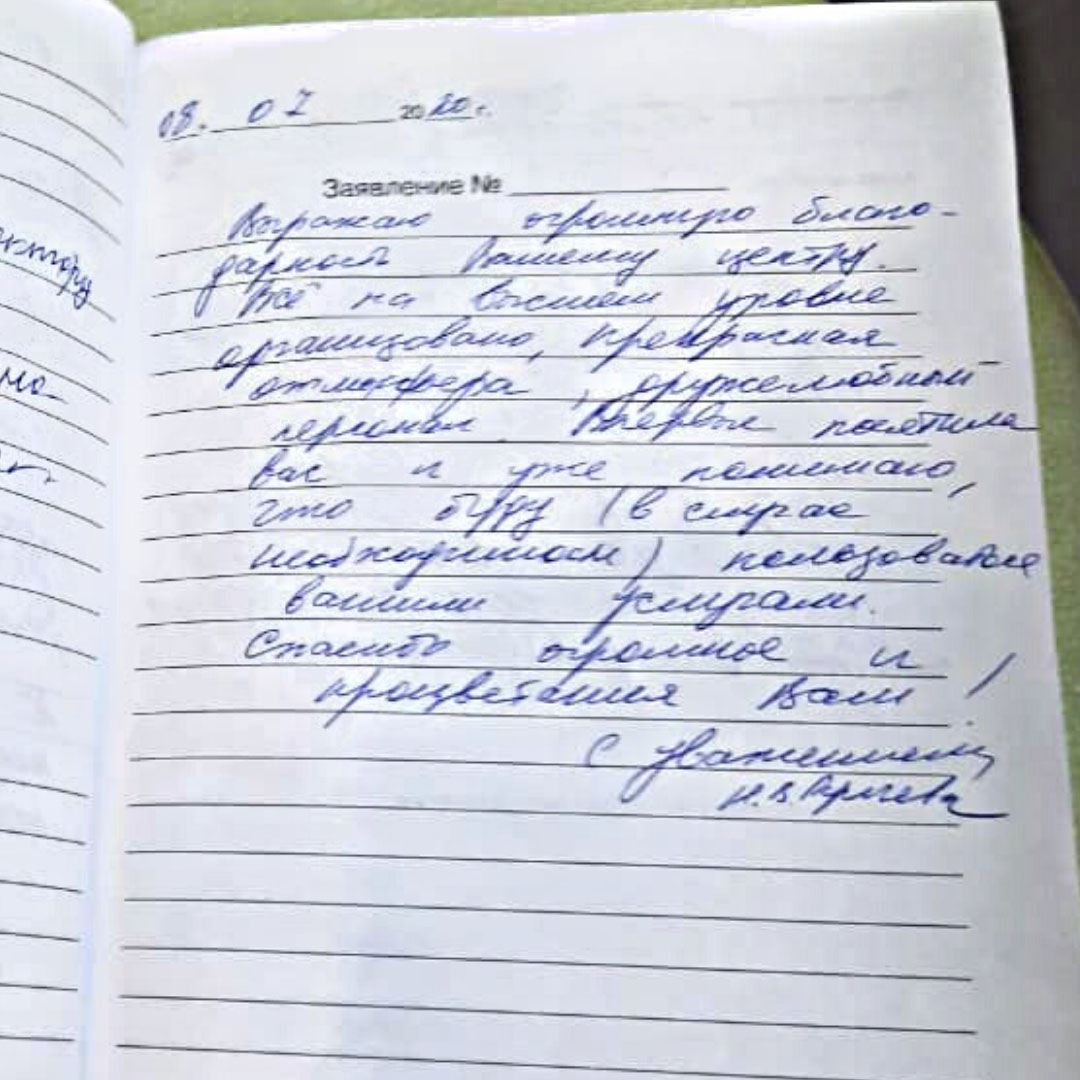 08. 07 2020 г.
Заявление №
Выражаю огромную благо-
дарность Вашему центру.
Всё на высшем уровне
организовано, прекрасная
атмосфера, дружелюбный
персонал. Впервые посетила
вас и уже понимаю,
что буду (в случае
необходимости) пользоваться
вашими услугами.
Спасибо огромное и
процветания Вам!
С уважением,
Н.В.
ектору
но-